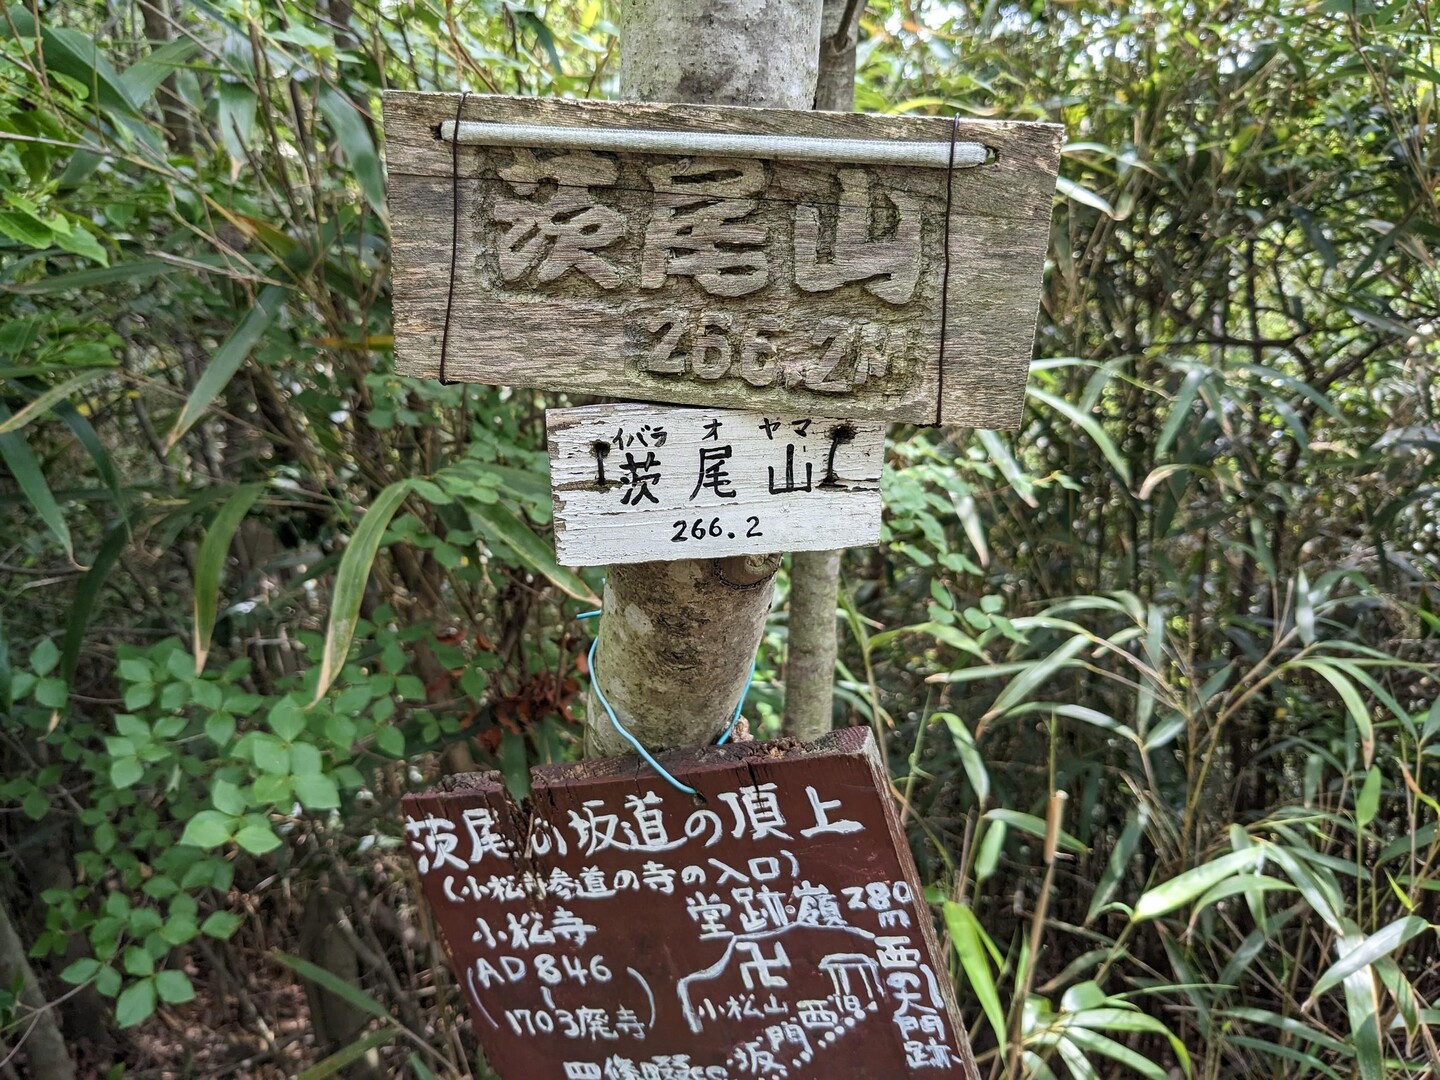 茨尾山
266.2M
イバラ オ ヤマ
茨尾山
266.2
茨尾の坂道の頂上
(小松寺参道の寺の入口)
小松寺
(AD846
~
1703廃寺)
堂跡嶺280m
卍
小松山
西の大門跡
西
坂門